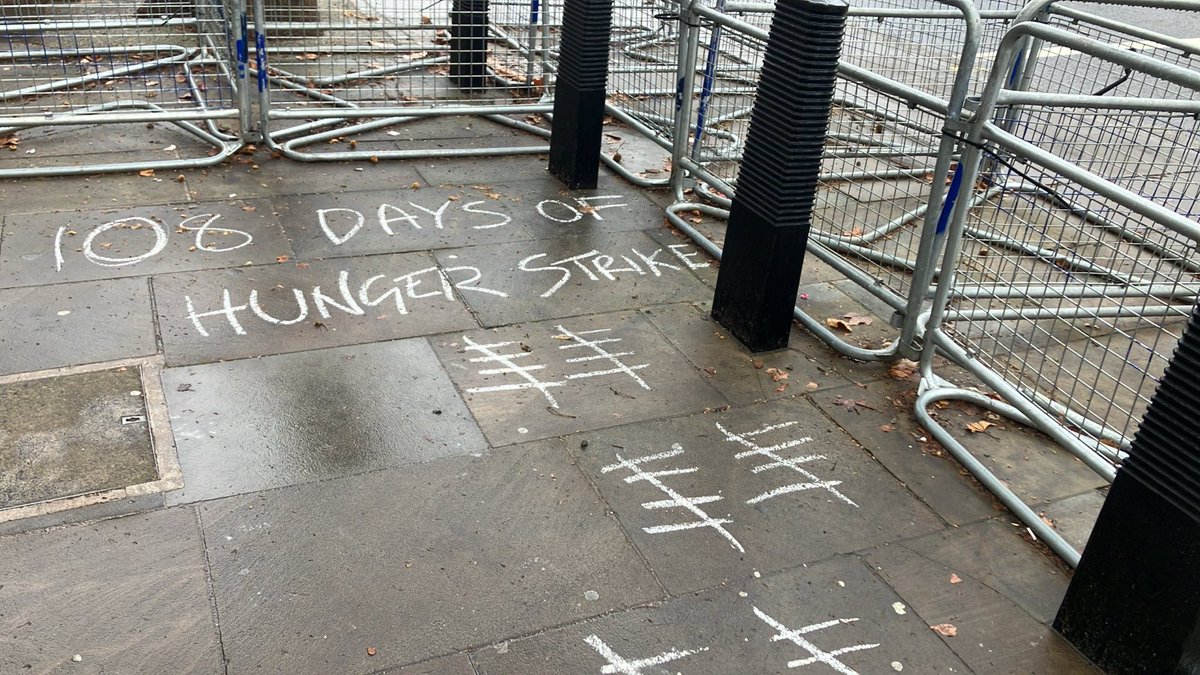 108 DAYS OF
HUNGER STRIKE